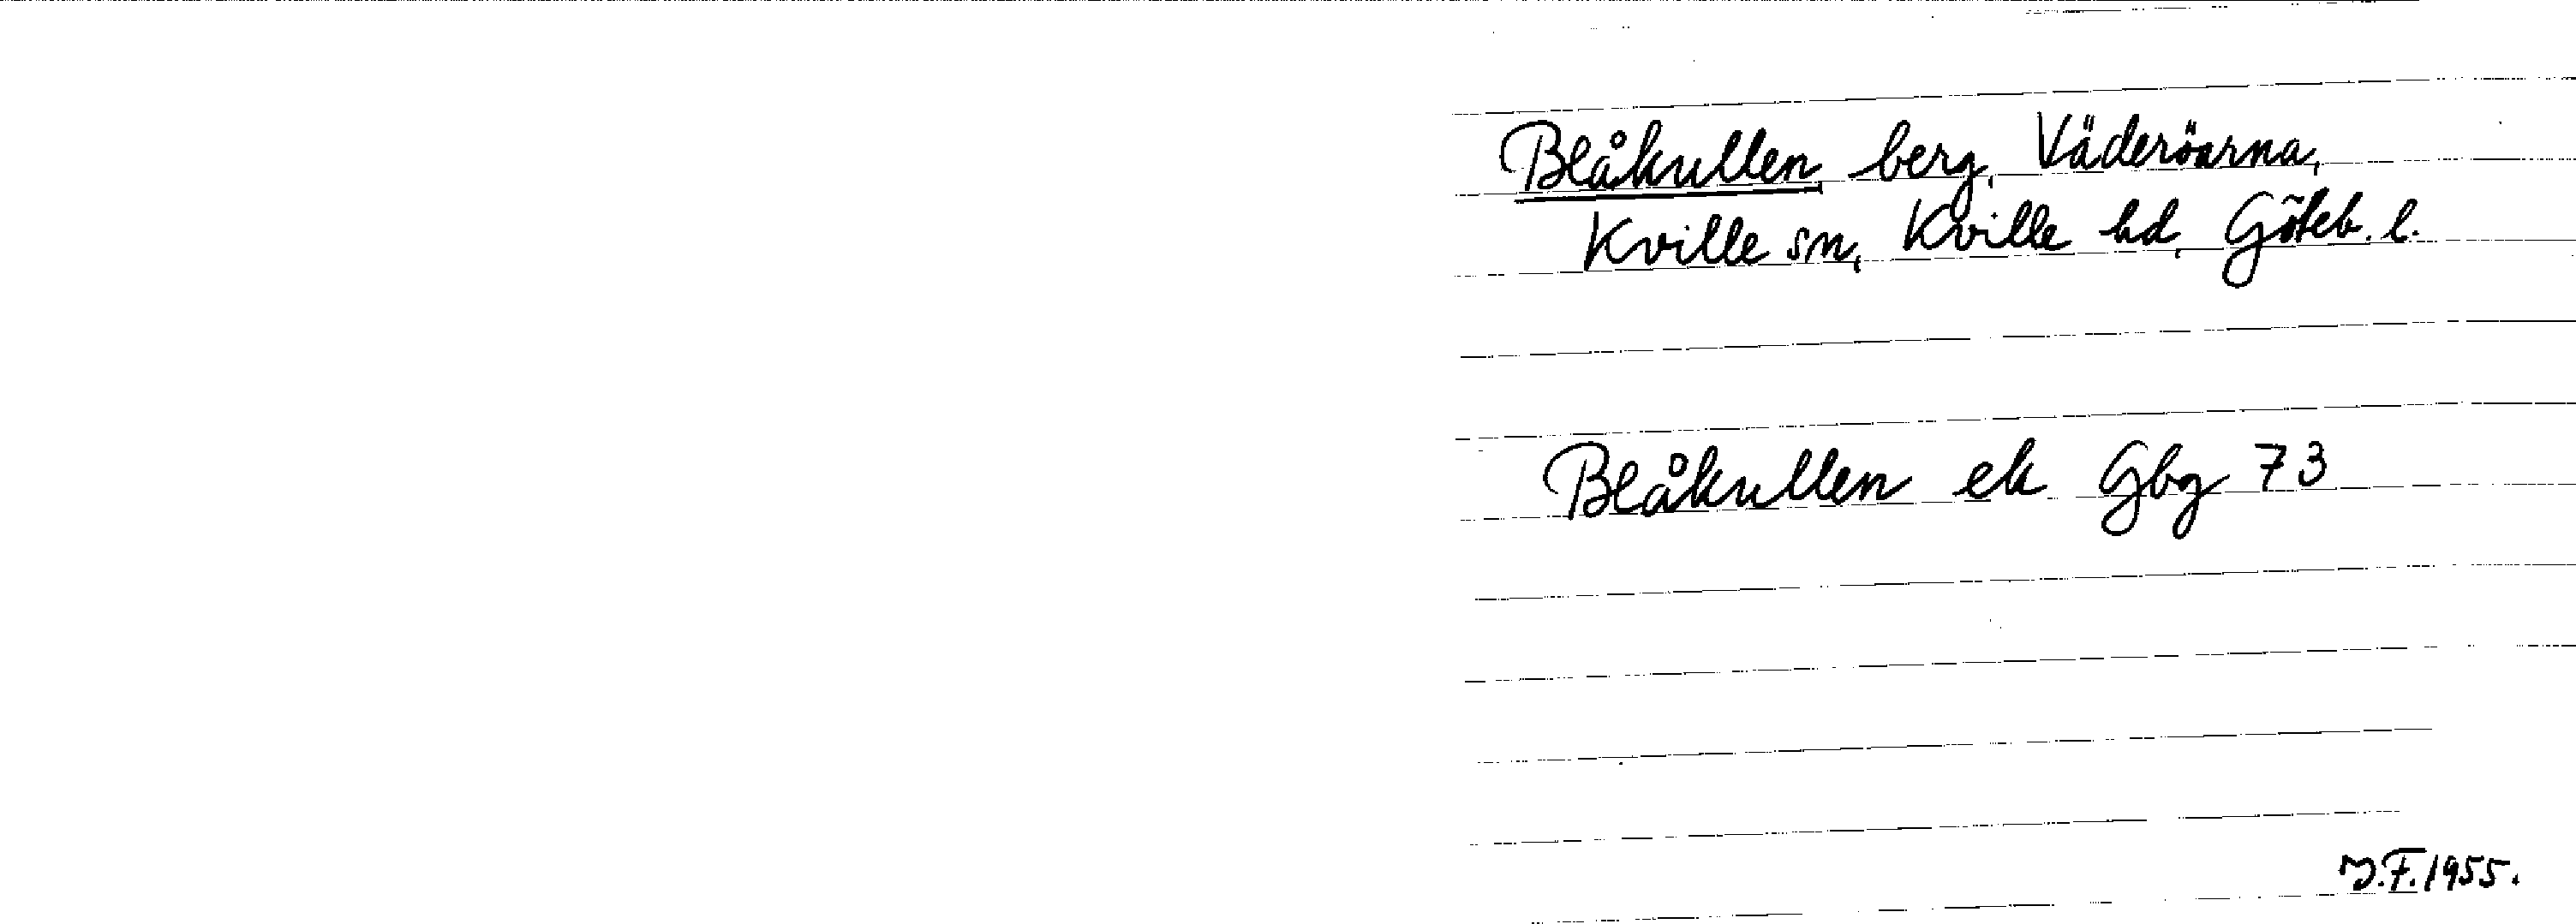 Blåkullen, berg, Väderöarna,
Kville sn, Kville hd, Göteb. l.
Blåkullen ek Gbg 73
J.F. 1955.